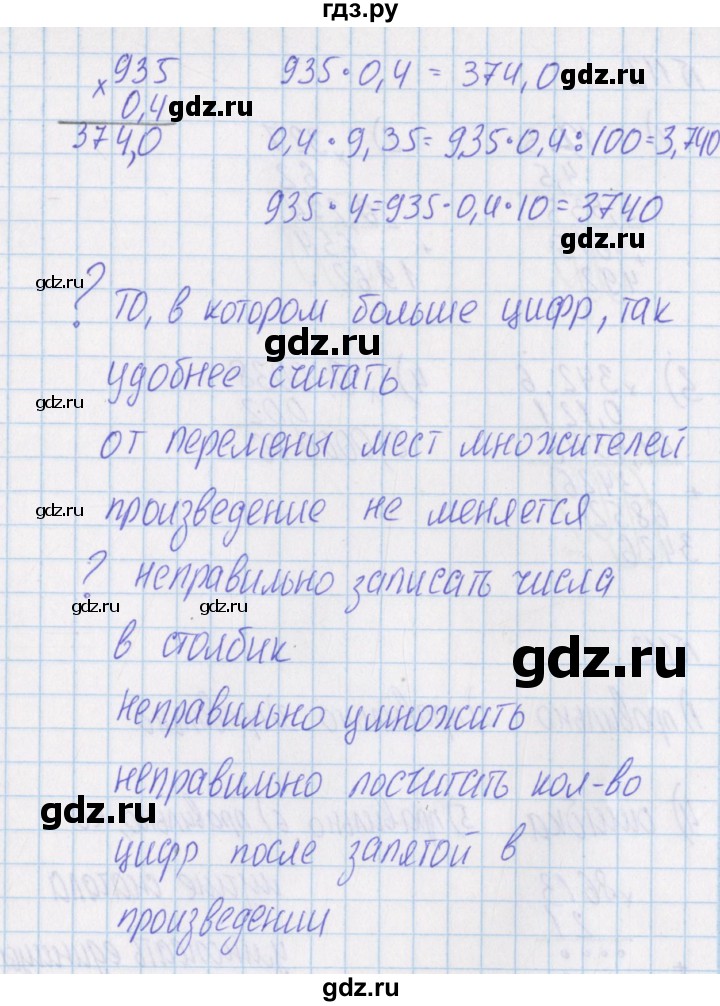 гдз.ру
935 935 · 0,4 = 374,0
× 0,4
gdz.ru
374,0 0,4 · 9,35 = 935 · 0,4 : 100 = 3,740
935 · 4 = 935 · 0,4 · 10 = 3740
gdz.ru
gdz.ru
? То, в котором больше цифр, так
gdz.ru
удобнее считать
gdz.ru
от перемены мест множителей
gdz.ru
произведение не меняется
? неправильно записать числа
gdz.ru gdz.ru
в столбик
gdz.ru
неправильно умножить
неправильно посчитать кол-во
gdz.ru
цифр после запятой в
произведении
gdz.ru